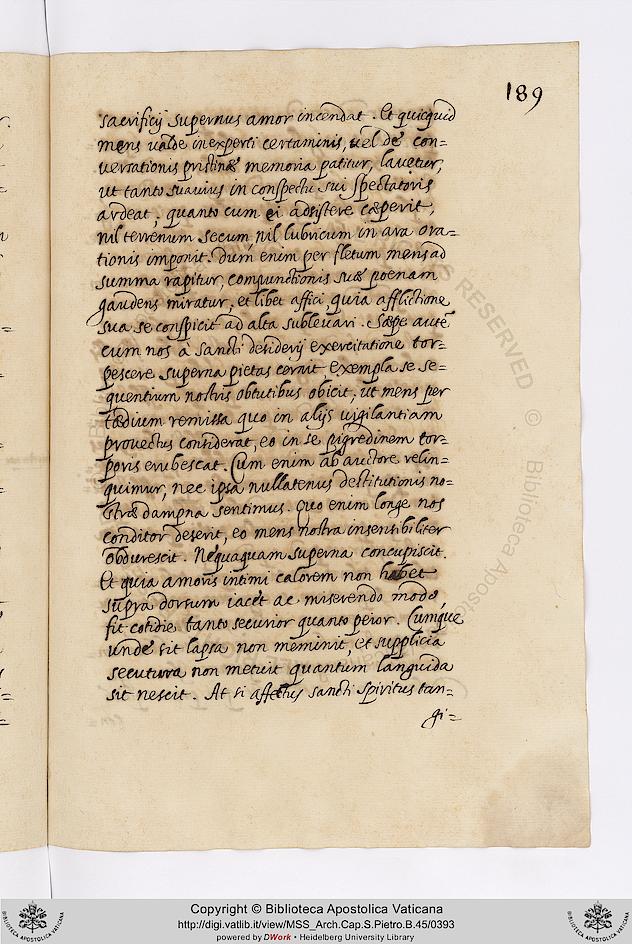 189
sacrificij supernus amor incendat. Et quicquid
mens ualde inexperti certaminis, uel de con=
uersationis pristinæ memoria patitur, lauetur,
ut tanto suauius in conspectu sui spectatoris
ardeat, quanto cum ei adsistere cæperit,
nil terrenum secum, nil lubricum in ara ora=
tionis imponit. Dum enim per fletum mens ad
summa rapitur, compunctionis suæ poenam
gaudens miratur, et libet affici, quia afflictione
sua se conspicit ad alta subleuari. Sæpe autē
cum nos à sancti desiderij exercitatione tor=
pescere superna pietas cernit, exempla se se=
quentium nostris obtutibus obicit, ut mens per
tædium remissa quo in alijs uigilantiam
prouectus considerat, eo in se pigredinem tor=
poris erubescat. Cum enim ab auctore relin=
quimur, nec ipsa nullatenus destitutionis no=
stræ dampna sentimus. Quo enim longe nos
conditor deserit, eo mens nostra insensibiliter
obdurescit. Nequaquam superna concupiscit.
Et quia amoris intimi calorem non habet
supra dorsum iacet ac miserendo modo
fit cotidie tanto securior quanto peior. Cumque
unde sit lapsa non meminit, et supplicia
secutura non metuit quantum languida
sit nescit. At si affectus sancti spiritus tan=
gi=
Copyright © Biblioteca Apostolica Vaticana
http://digi.vatlib.it/view/MSS_Arch.Cap.S.Pietro.B.45/0393
powered by DWork • Heidelberg University Library